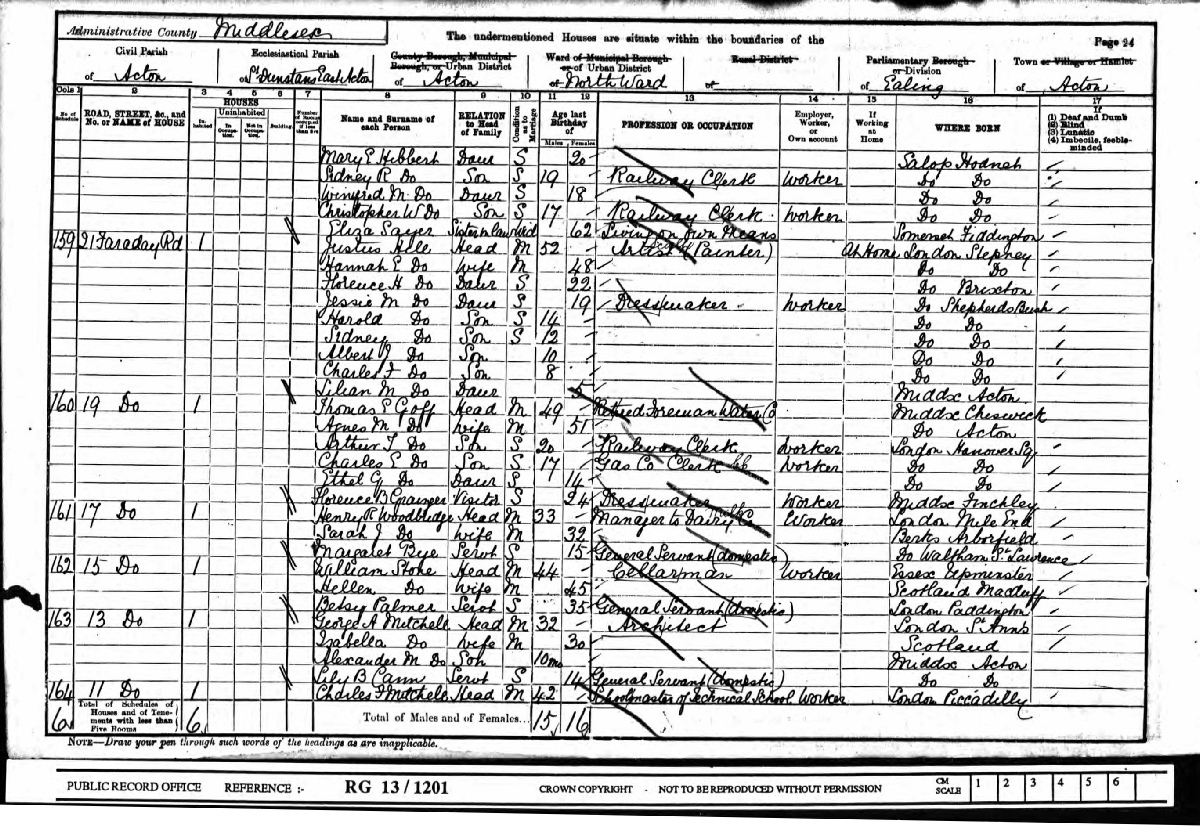 Administrative County Middlesex
The undermentioned Houses are situate within the boundaries of the
Page 24
Civil Parish of Acton
Ecclesiastical Parish of St Dunstans East Acton
County Borough, Municipal Borough, or Urban District of Acton
Ward of Municipal Borough or of Urban District of North Ward
Rural District of
Parliamentary Borough or Division of Ealing
Town or Village or Hamlet of Acton
Cols 1 2 3 4 5 6 7 8 9 10 11 12 13 14 15 16 17
No. of Schedule
ROAD, STREET, &c., and No. or NAME of HOUSE
HOUSES
Inhabited
Uninhabited
In Occupation.
Not in Occupation.
Building.
Name and Surname of each Person
RELATION to Head of Family
Condition as to Marriage
Age last Birthday of
Males Females
PROFESSION OR OCCUPATION
Employer, Worker, or Own account
If Working at Home
WHERE BORN
(1) Deaf and Dumb
(2) Blind
(3) Lunatic
(4) Imbecile, feeble-minded
Mary E Hibbert Daur S 20 Salop Hodnet
Sidney R Do Son S 19 Railway Clerk Worker Do Do
Winifred M Do Daur S 18 Do Do
Christopher W Do Son S 17 Railway Clerk Worker Do Do
Eliza Sayer Sister in law Wid 62 Living on Own Means Somerset Fiddington
159 21 Faraday Rd 1 Justus Head M 52 Artist (Painter) At Home London Stepney
Hannah E Do Wife M 48 Do Do
Florence H Do Daur S 22 Do Brixton
Jessie M Do Daur S 19 Dressmaker Worker Do Shepherds Bush
Harold Do Son S 14 Do Do
Sidney Do Son S 12 Do Do
Albert J Do Son 10 Do Do
Charles F Do Son 8 Do Do
Lilian M Do Daur 5 Middx Acton
160 19 Do 1 Thomas E Goff Head M 49 Retired Foreman Water Co Middx Cheswick
Agnes M Do Wife M 51 Do Acton
Arthur T Do Son S 20 Railway Clerk Worker London Hanover Sq
Charles E Do Son S 17 Gas Co Clerk Worker Do Do
Ethel G Do Daur S 14 Do Do
Florence B Grainger Visitor S 24 Dressmaker Worker Middx Finchley
161 17 Do 1 Henry R Woodbridge Head M 33 Manager to Dairy Co Worker London Mile End
Sarah J Do Wife M 32 Berks Arborfield
Margaret Bye Servt S 15 General Servant (domestic) Do Waltham St Lawrence
162 15 Do 1 William Stone Head M 44 Cellarman Worker Essex Upminster
Hellen Do Wife M 45 Scotland
Betsy Palmer Servt S 35 General Servant (domestic) London Paddington
163 13 Do 1 George A Mitchell Head M 32 Architect London St Anns
Isabella Do Wife M 30 Scotland
Alexander M Do Son 10mo Middx Acton
Lily B Cann Servt S 14 General Servant (domestic) Do Do
164 11 Do 1 Charles F Mitchell Head M 42 Schoolmaster of Technical School Worker London Piccadilly
6 Total of Schedules of Houses and of Tenements with less than Five Rooms 6
Total of Males and of Females... 15 16
NOTE—Draw your pen through such words of the headings as are inapplicable.
PUBLIC RECORD OFFICE REFERENCE :- RG 13/1201 CROWN COPYRIGHT - NOT TO BE REPRODUCED WITHOUT PERMISSION CM SCALE 1 2 3 4 5 6